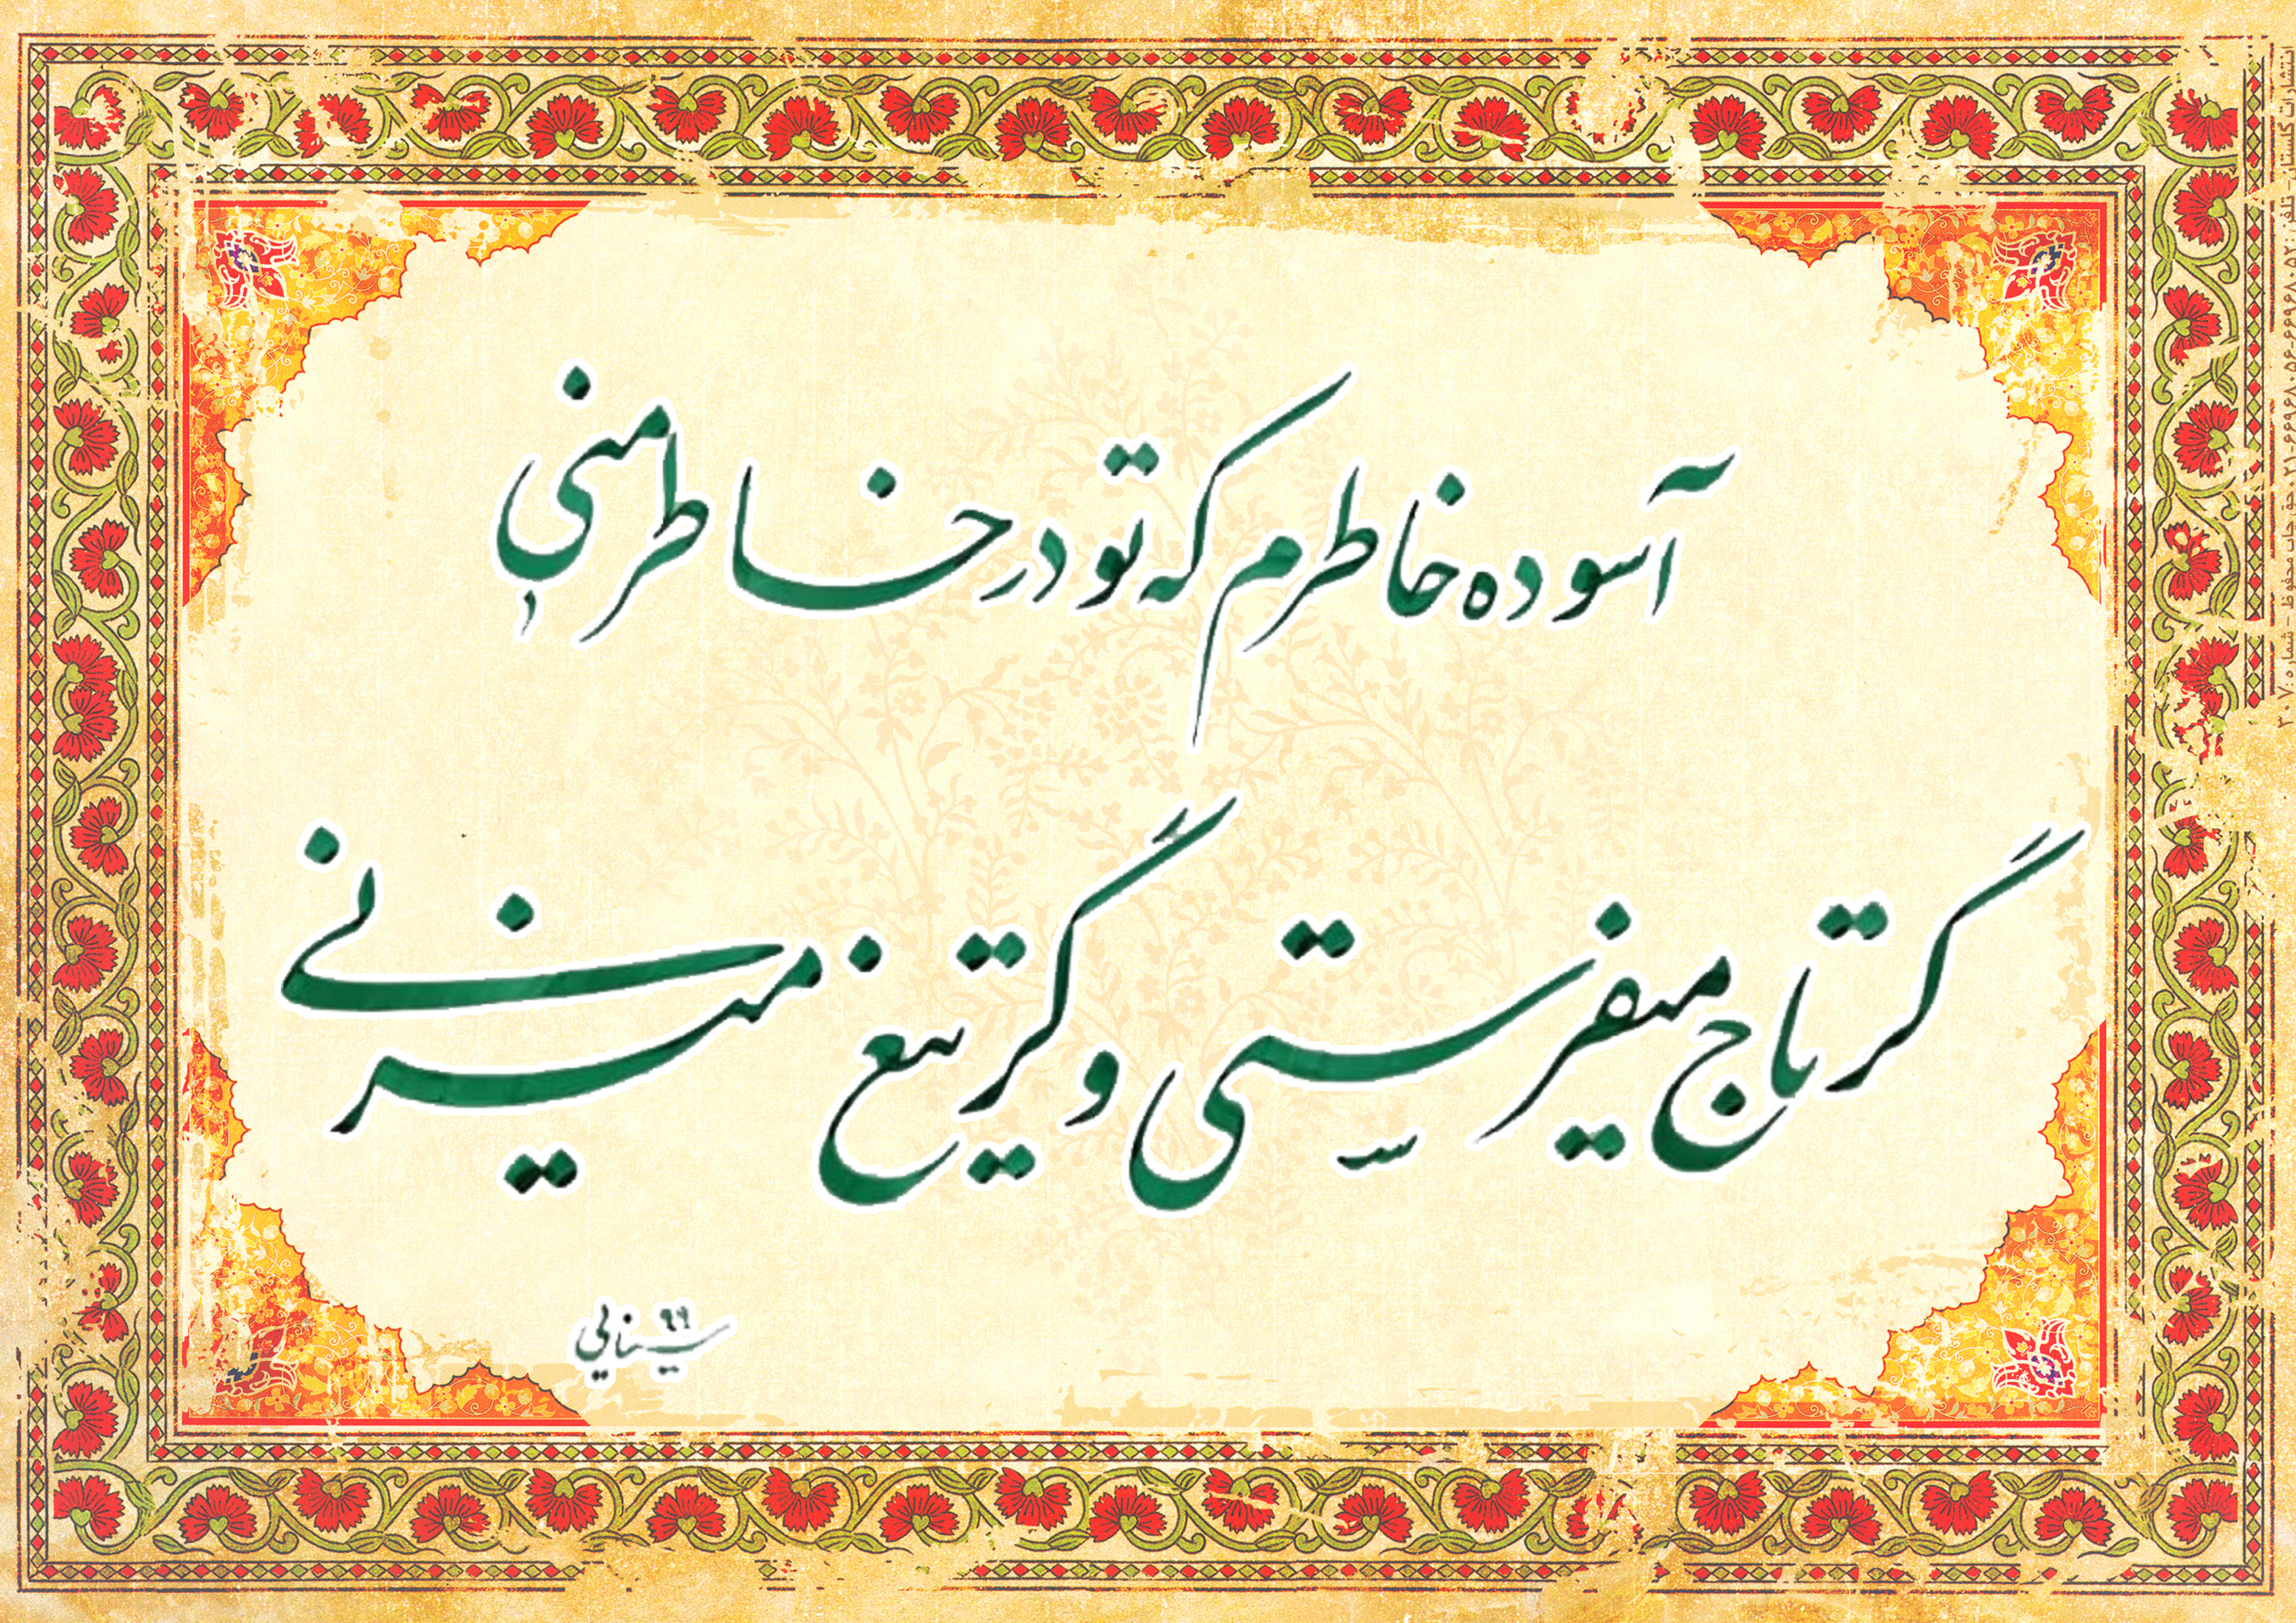 آسوده خاطرم که تو در خاطر منی
گر تاج میفرستی و گر تیغ میزنی
سینایی ۹۹